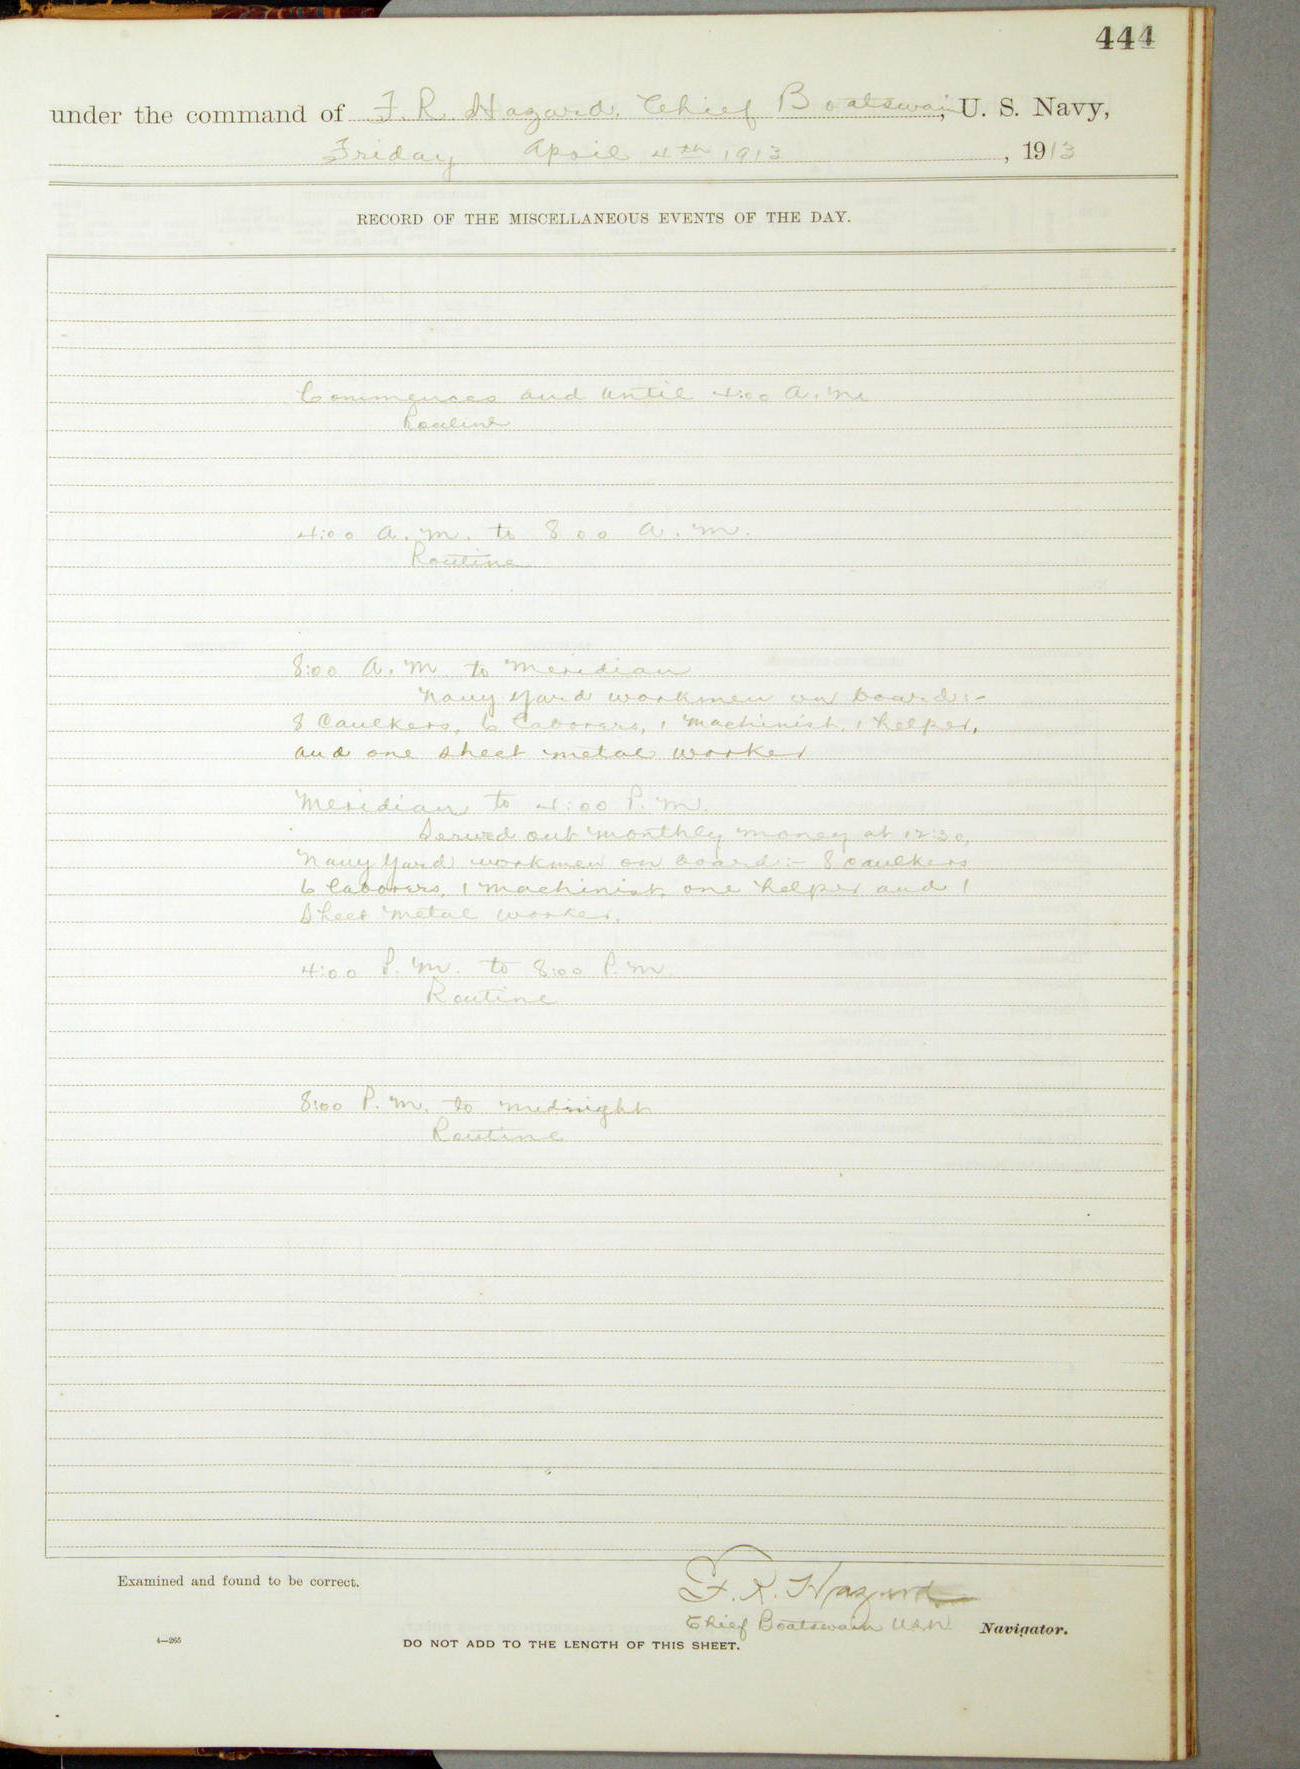 444
under the command of F. R. Hazard, Chief Boatswain, U. S. Navy,
Friday April 4th 1913, 1913
RECORD OF THE MISCELLANEOUS EVENTS OF THE DAY.
Commences and until 4:00 A.M.
Routine
4:00 A.M. to 8 00 A.M.
Routine
8:00 A.M. to Meridian
Navy Yard workmen on board:-
8 Caulkers, 6 laborers, 1 machinist, 1 helper,
and one sheet metal worker
Meridian to 4:00 P.M.
Served out monthly money at 12:30,
Navy Yard workmen on board:- 8 caulkers
6 laborers, 1 machinist, one helper and 1
sheet metal worker.
4:00 P.M. to 8:00 P.M.
Routine
8:00 P.M. to midnight
Routine
Examined and found to be correct.
F. R. Hazard
Chief Boatswain U.S.N. Navigator.
4—265
DO NOT ADD TO THE LENGTH OF THIS SHEET.